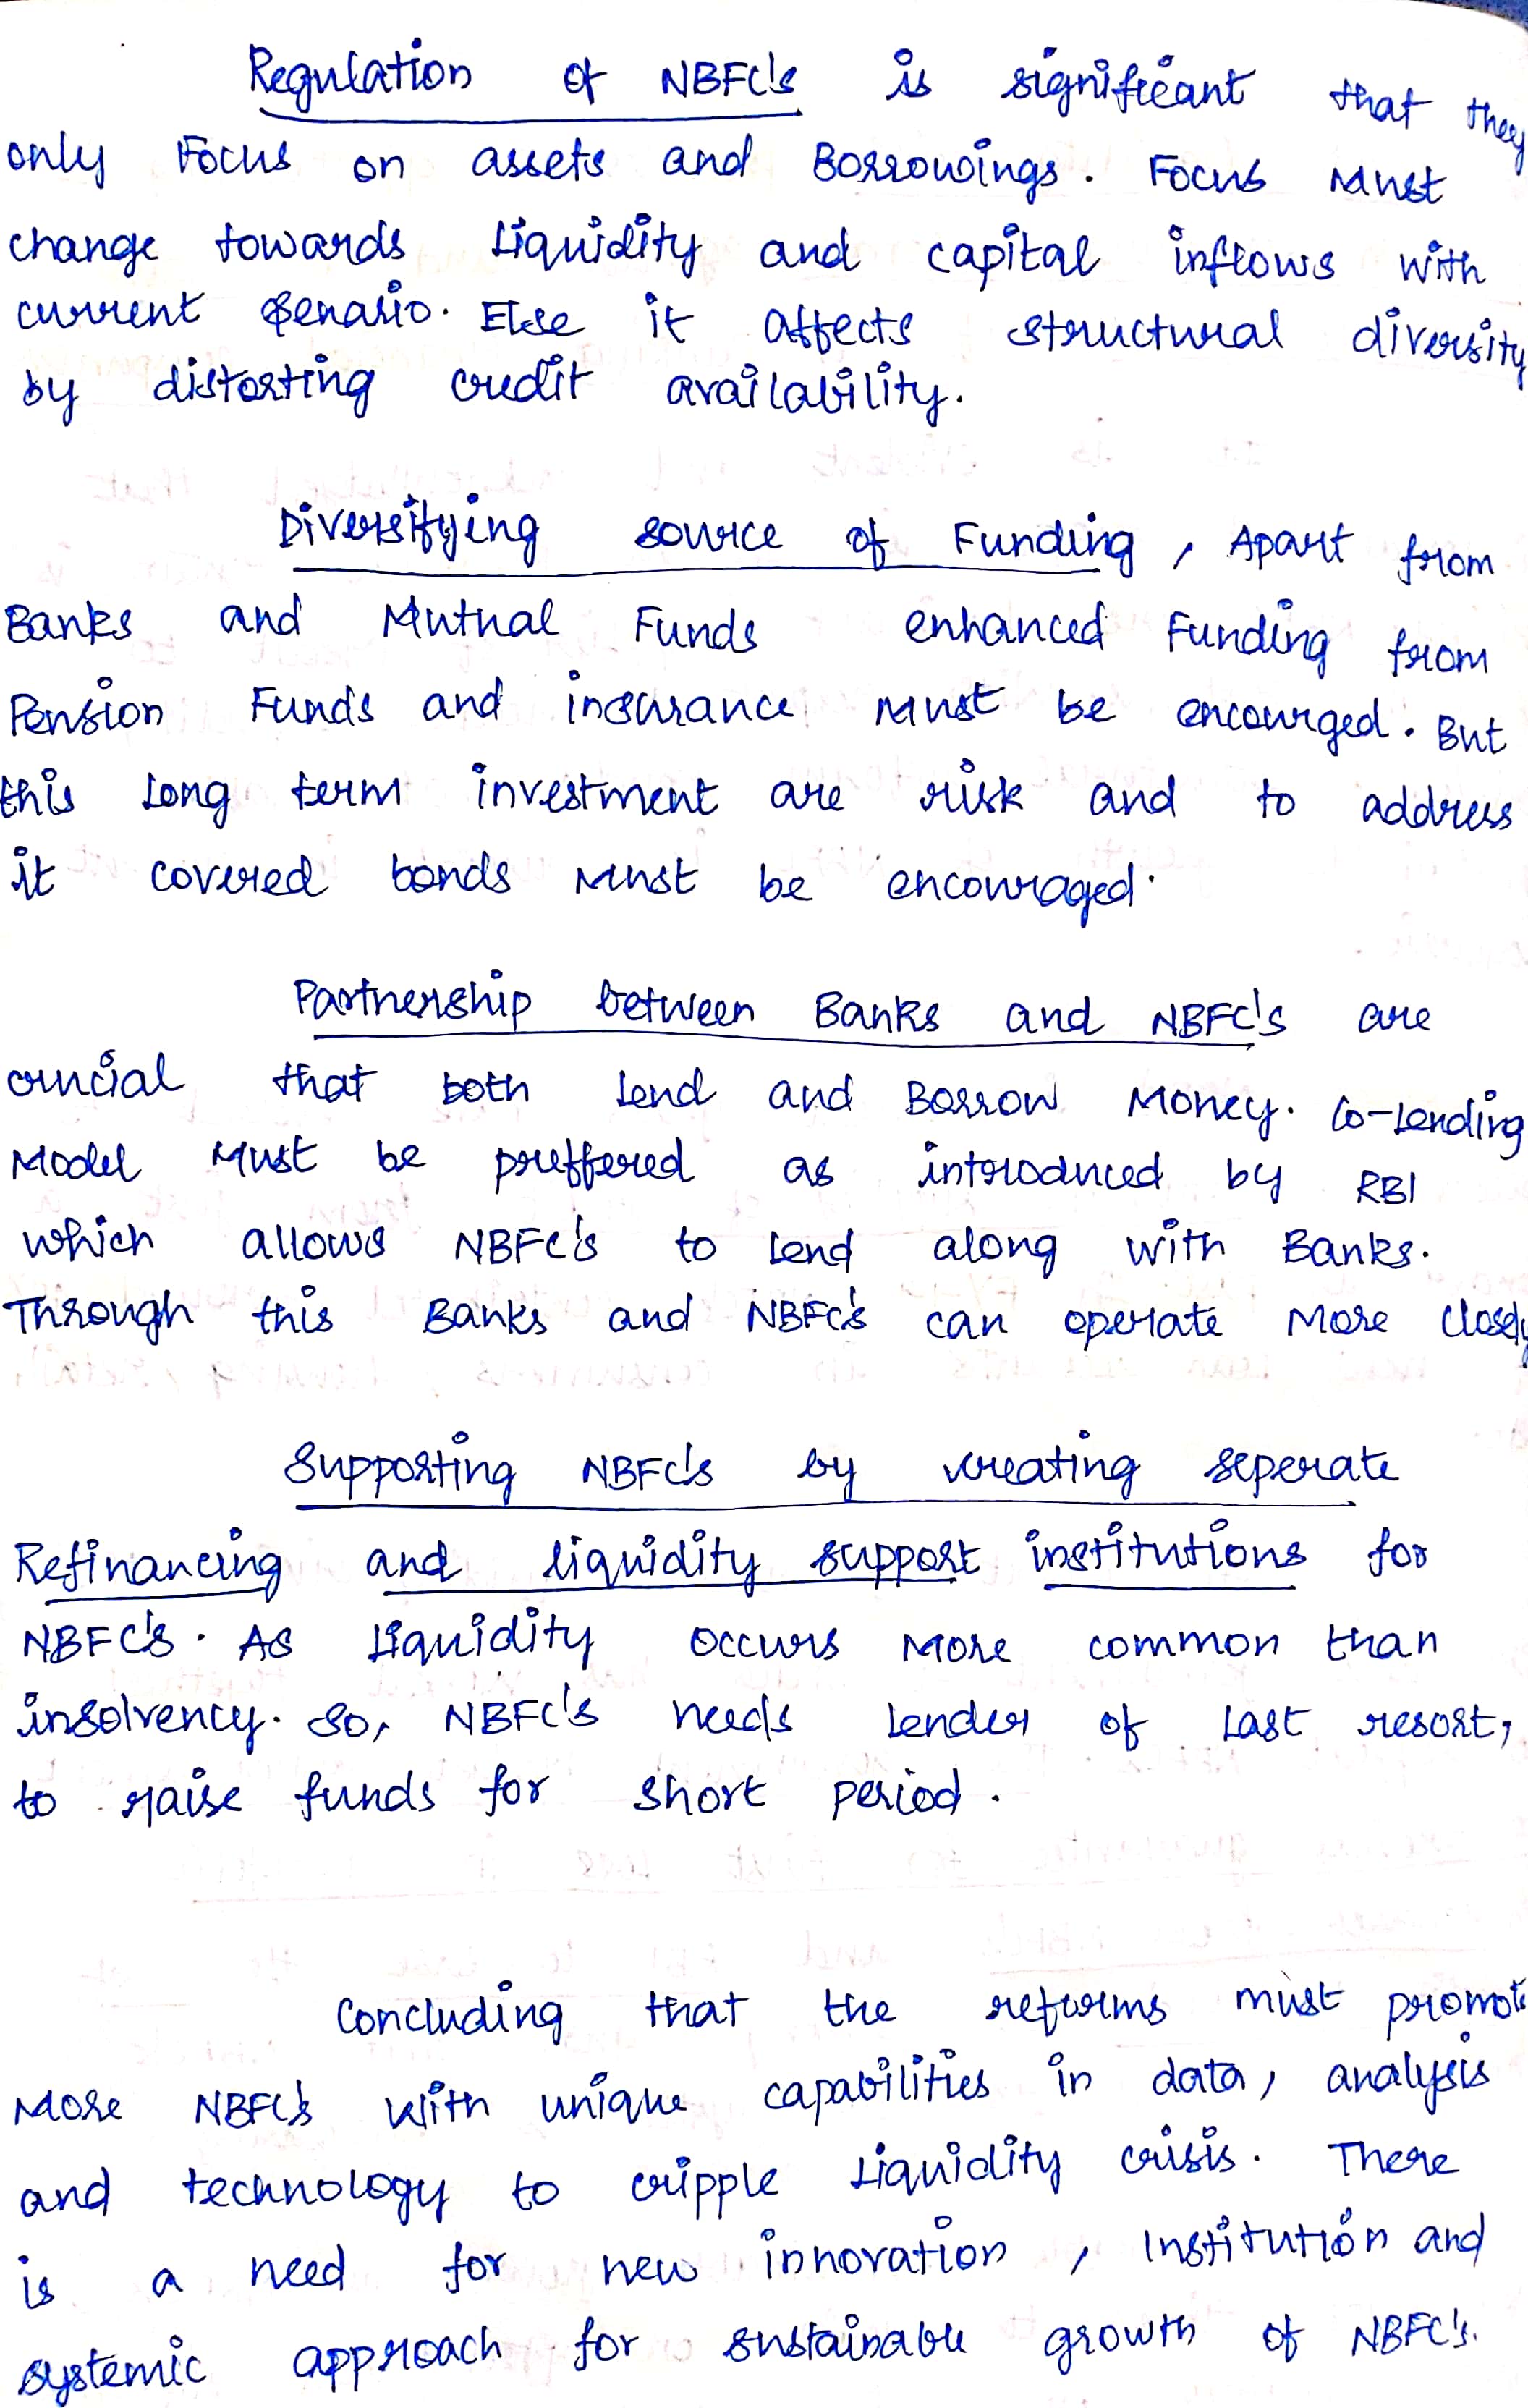 Regulation of NBFC's is significant that they
only Focus on assets and Borrowings. Focus Must
change towards Liquidity and capital inflows with
current Senario. Else it affects structural diversity
by distorting credit availability.
Diversifying source of Funding, Apart from
Banks and Mutual Funds enhanced Funding from
Pension Funds and insurance Must be encourged. But
this Long term investment are risk and to address
it covered bonds Must be encouraged.
Partnership between Banks and NBFC's are
crucial that both Lend and Borrow Money. Co-Lending
Model Must be preffered as introduced by RBI
which allows NBFC's to Lend along with Banks.
Through this Banks and NBFC's can operate More closely
Supporting NBFC's by creating seperate
Refinancing and liquidity support institutions for
NBFC's. As Liquidity occurs More common than
insolvency. So, NBFC's needs Lender of Last resort,
to raise funds for short period.
Concluding that the reforms must promote
More NBFC's with unique capabilities in data, analysis
and technology to cripple Liquidity crisis. There
is a need for new innovation, Institution and
systemic approach for sustainable growth of NBFC's.